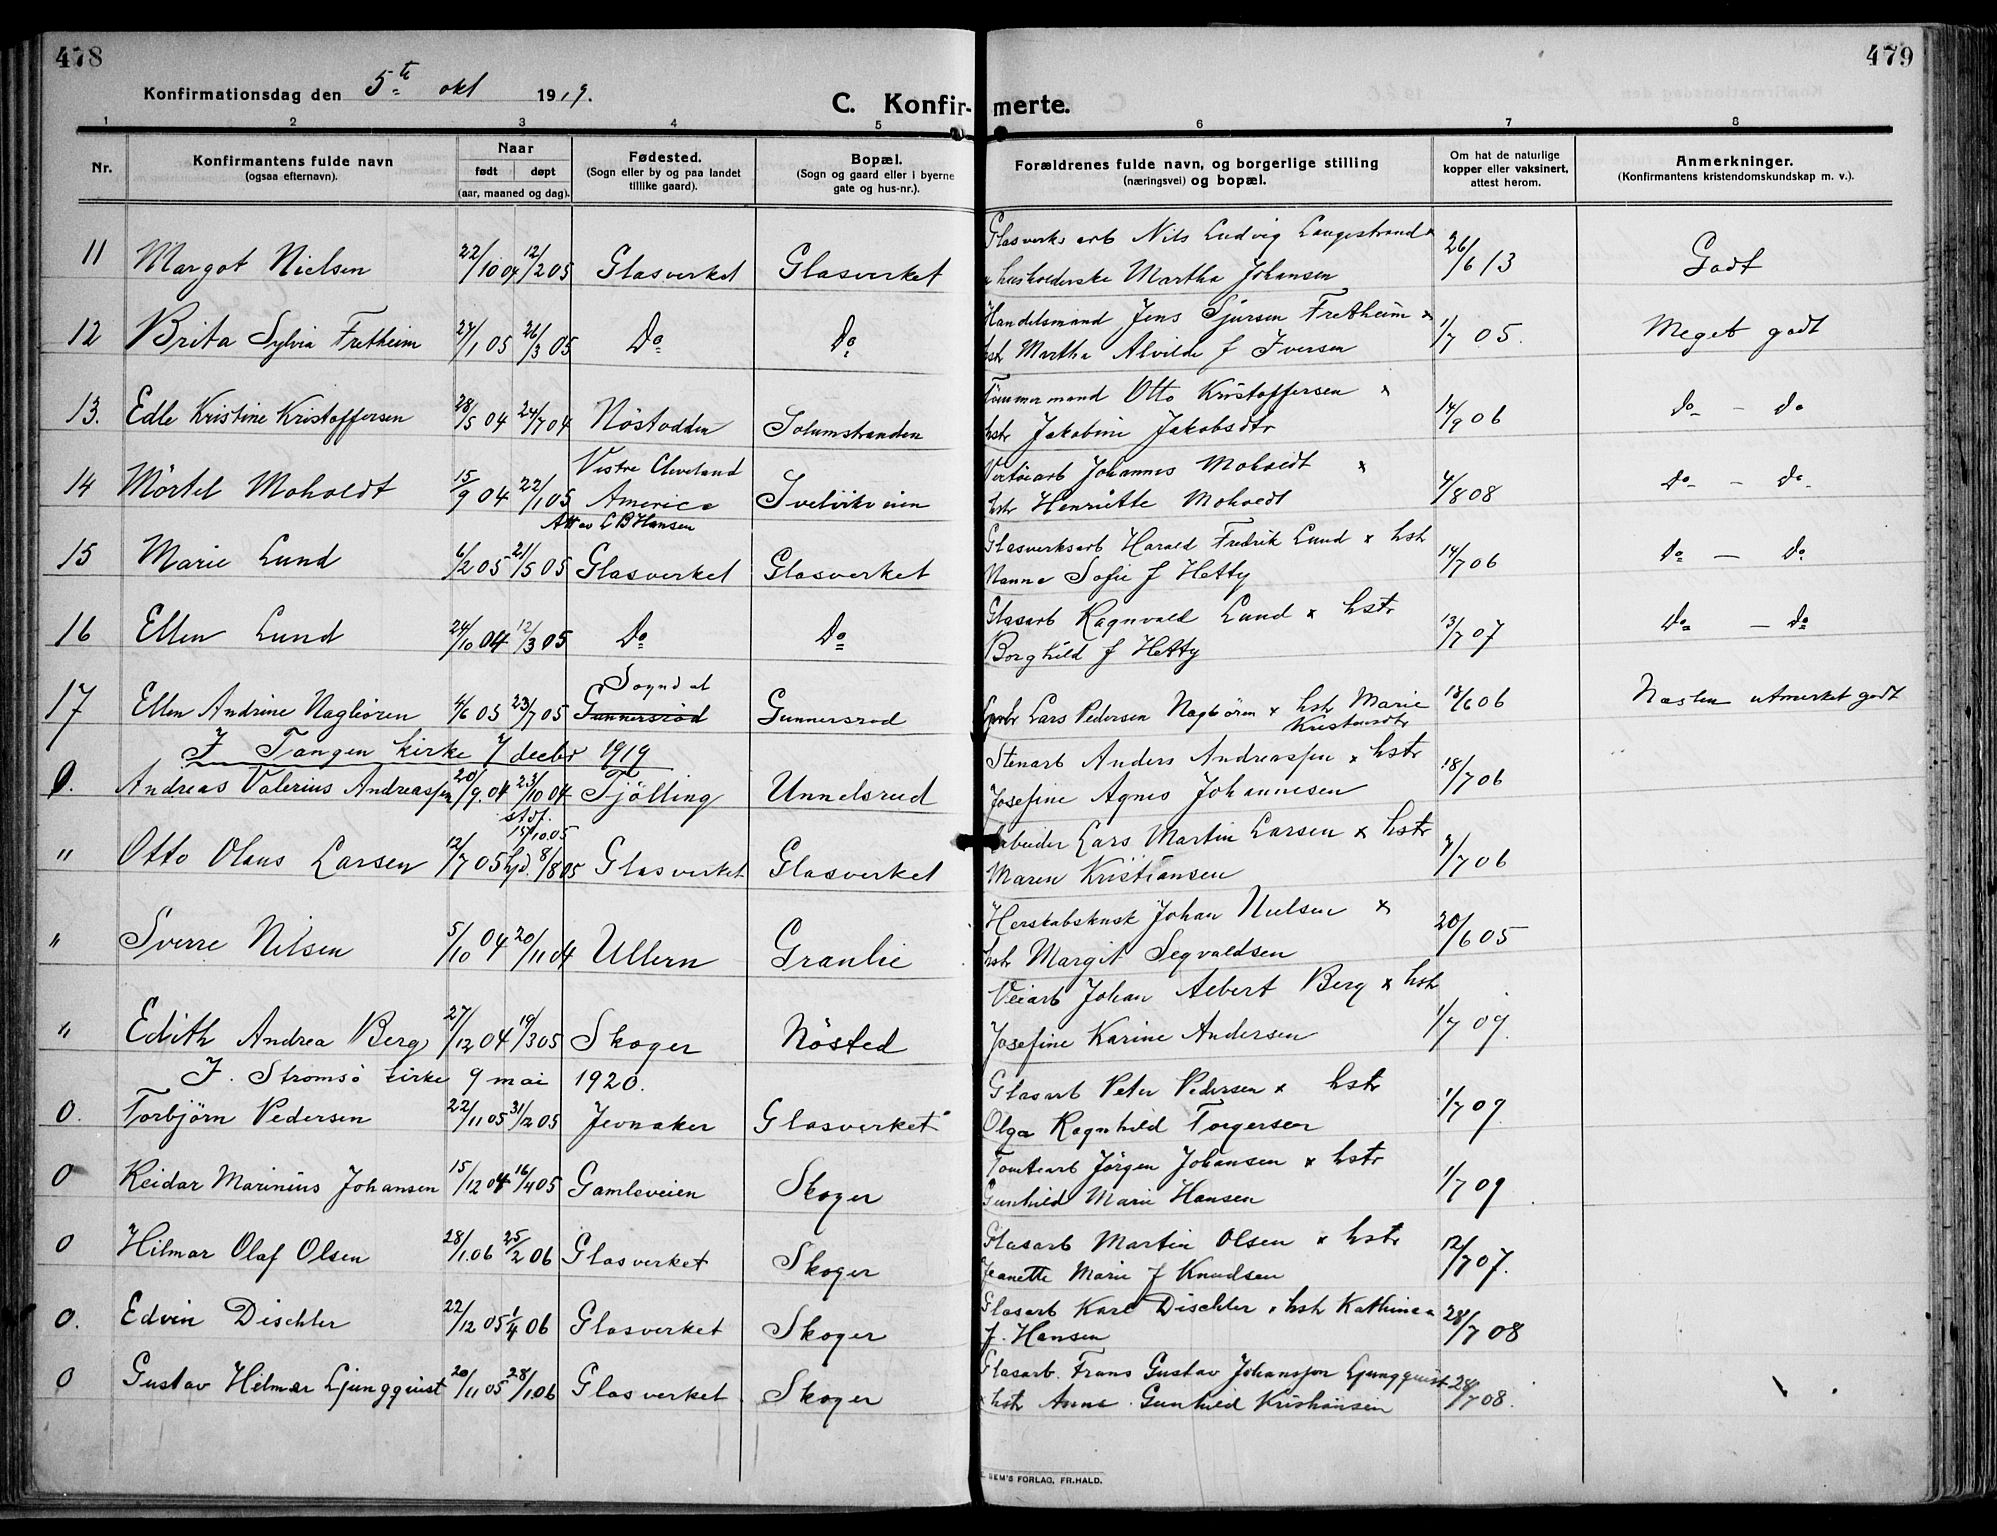 478
479
Konfirmationsdag den 5te okt 1919.
C. Konfirmerte.
1 2 3 4 5 6 7 8
Nr.
Konfirmantens fulde navn
(ogsaa efternavn).
Naar
født døpt
(aar, maaned og dag).
Fødested.
(Sogn eller by og paa landet
tillike gaard).
Bopæl.
(Sogn og gaard eller i byerne
gate og hus-nr.).
Forældrenes fulde navn, og borgerlige stilling
(næringsvei) og bopæl.
Om hat de naturlige
kopper eller vaksinert,
attest herom.
Anmerkninger.
(Konfirmantens kristendomskundskap m. v.).
Glasverks arb Nils Ludvig Langestrand
11 Margot Nielsen 22/10 04 12/2 05 Glasverket Glasverket husholderske Martha Johansen 26/6 13 Godt
Handelsmand Jens Sjursen Fretheim x
12 Brita Sylvia Fretheim 27/1 05 26/3 05 Do Do hstr Martha Alvilde f Iversen 1/7 05. Meget godt
Tømmermand Otto Kristoffersen x
13. Edle Kristine Kristoffersen 28/5 04 24/7 04 Nöstodden Solumstranden hstr Jakobine Jakobsdtr 14/9 06 Do - do
Vestre Cleveland
Johannes Moholdt x
14 Mörtel Moholdt 15/9 04 22/1 05 America Svelvikveien hstr Henriette Moholdt 4/8 08 Do - Do
Att av C B Hansen
Glasverksarb Harald Fredrik Lund x hstr
15 Marie Lund 6/2 05 21/5 05 Glasverket Glasverket Nanna Sofie f Hetty 14/7 06 Do - Do
Glasarb Ragnvald Lund x hstr
16 Ellen Lund 24/10 04 12/3 05 Do Do Borghild f Hetty 13/7 07 Do - Do
Sogndal
17 Ellen Andrine Nagbören 4/6 05 23/7 05 Gunnersröd Gunnersrod Lars Pedersen Nagbören x hstr Marie 18/6 06 Næsten utmerket godt
Kristensdtr
I Tangen kirke 7 decbr 1919
Stenarb Anders Andreassen x hstr
0. Andreas Valerius Andreassen 20/9. 04 23/10 04 Tjölling Unnelsrud Josefine Agnes Johannesen 18/7 06
st df.
15/10.05
Arbeider Lars Martin Larsen x hstr
" Otto Olaus Larsen 12/7 05 hjd. 8/8 05 Glasverket Glasverket Maren Kristiansen 7/7 06
Herskabskusk Johan Nielsen x
" Sverre Nilsen 5/10 04 20/11 04 Ullern Granlie hstr Margit Segvaldsen 20/6 05
Veiarb Johan Albert Berg x hstr
" Edith Andrea Berg 27/12 04 19/3 05 Skoger Nösted Josefine Karine Andersen 1/7 09.
I. Strömsö kirke 9 mai 1920.
Glasarb Peter Pedersen x hstr
0. Torbjörn Pedersen 22/11 05 31/12 05 Jevnaker Glasverket Olga Ragnhild Torgersen 1/7 09.
Tomtearb Jörgen Johansen x hstr
0 Reidar Marinius Johansen 15/12 04 16/4 05 Gamleveien Skoger Gunhild Marie Hansen 1/7 09
Glasarb Martin Olsen x hstr
0 Hilmar Olaf Olsen 28/1.06 25/2 06 Glasverket Skoger Jeanette Marie f Knudsen 12/7 07.
Glasarb Karl Dischler x hstr Kathinca
0. Edvin Dischler 22/12 05 1/4 06 Glasverket Skoger f. Hansen 28/7 08
Glasarb. Frans Gustav Johansson Ljungquist
0 Gustav Hilmar Ljungquist 20/11 05 28/1 06 Glasverket Skoger x hstr Anna Gunhild Kristiansen 28/7 08.
SEM'S FORLAG, FR.HALD.